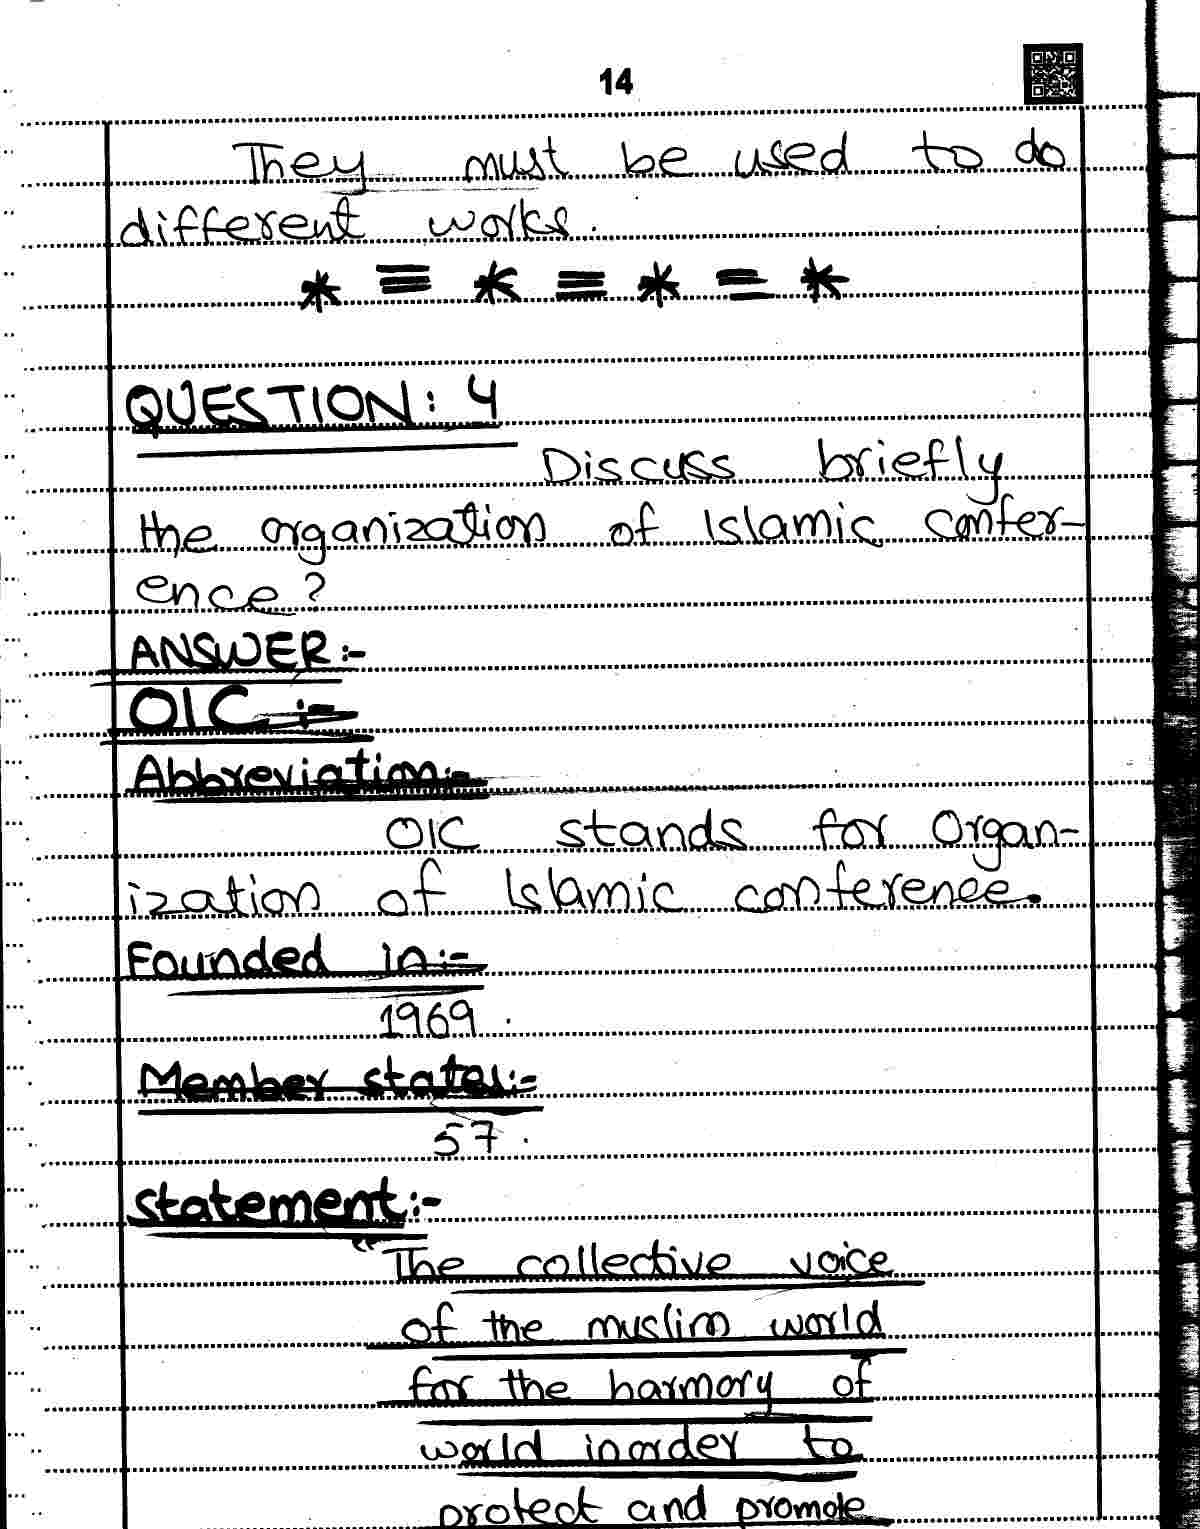 14
They must be used to do
different works.
* ≡ * ≡ * = *
QUESTION: 4
Discuss briefly
the organization of Islamic confer-
ence?
ANSWER:-
OIC :-
Abbreviation:-
OIC stands for Organ-
ization of Islamic conference.
Founded in:-
1969.
Member states:-
57.
statement:-
"The collective voice
of the muslim world
for the harmony of
world inorder to
protect and promote